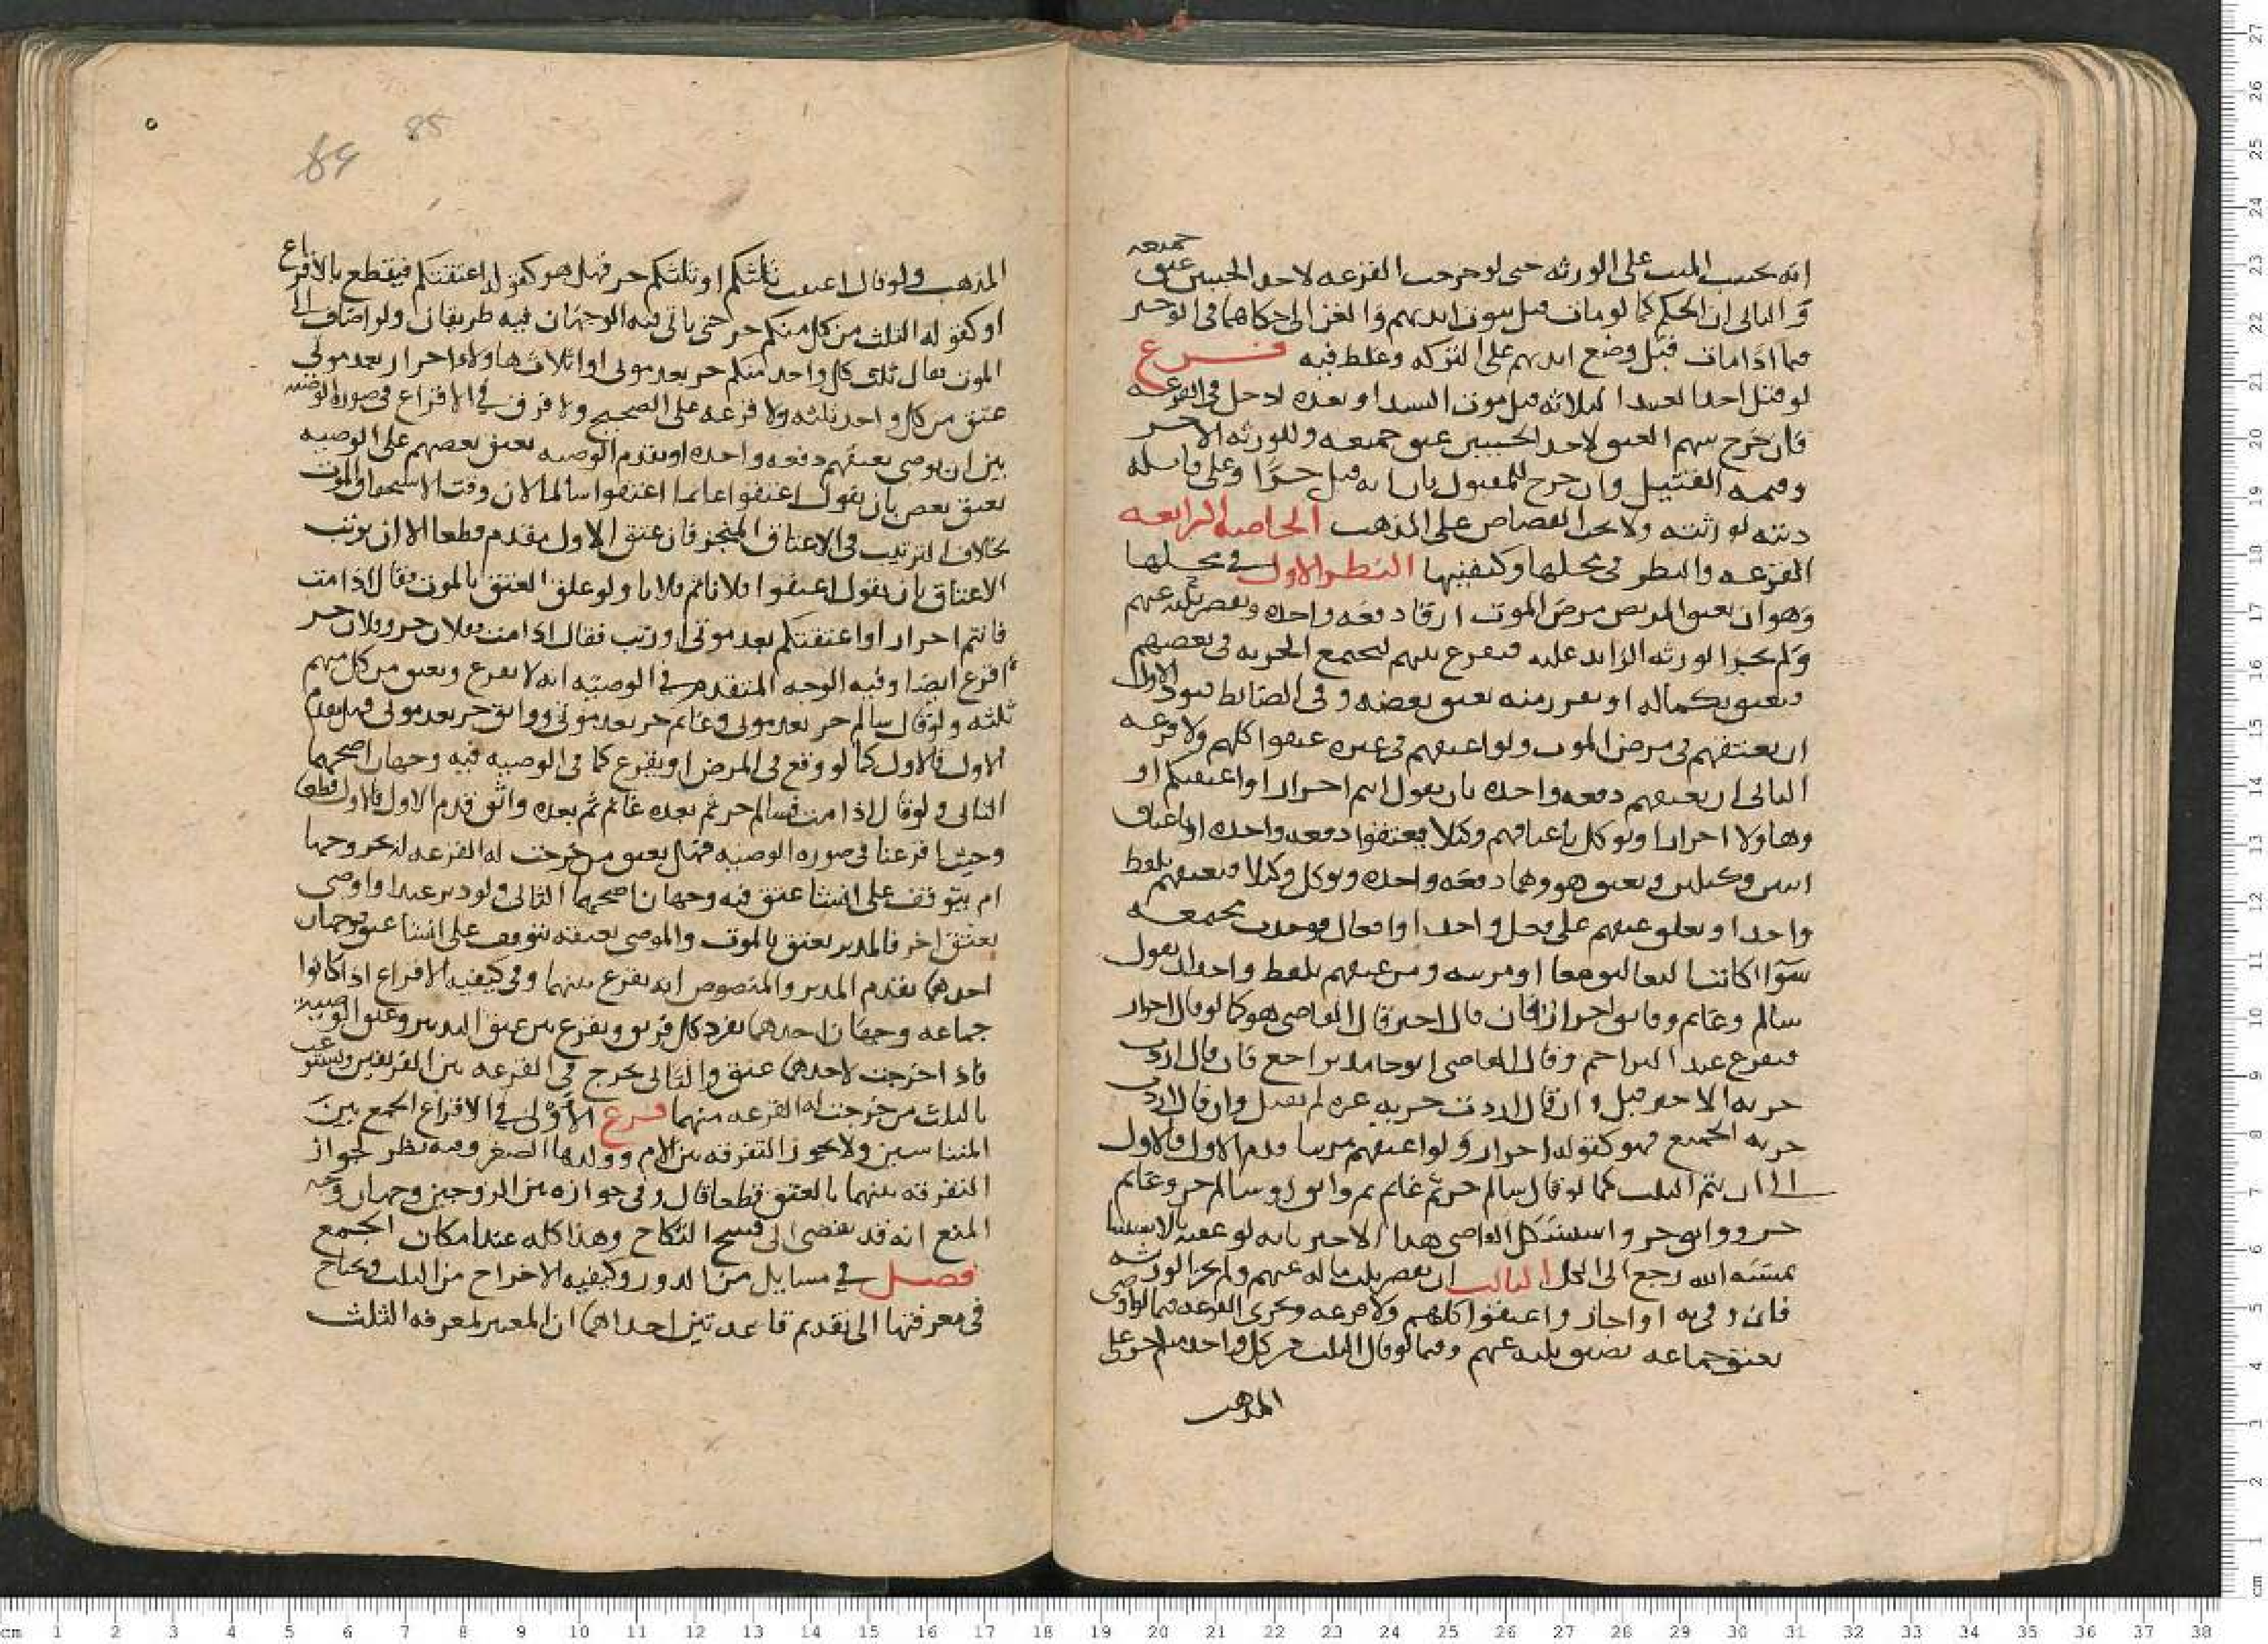 انه يحسب الميت على الورثه حتى لو خرجت القرعه لاحد الحيين عتق جميعه
والثاني ان الحكم كما لو مات قبل ثبوت ايديهم والغزالي حكاهما في الوجيز
فيما اذا مات قبل وضع ايديهم على التركه وغلط فيه فرع
لو قتل احد العبيد الثلاثه قبل موت السيد او بعده لدخل في القرعه
فان خرج سهم العتق لاحد الحيين عتق جميعه وللورثه الاخر
وقيمه القتيل وان خرج للمقتول بان انه قتل حرا وعلى قاتله
ديته لورثته ولا يجب القصاص على المذهب الخاصيه الرابعه
القرعه والنظر في محلها وكيفيتها النظر الاول في محلها
وهو ان يعتق المريض مرض الموت ارقا دفعه واحده ويقصر ثلثه عنهم
ولم يجز الورثه الزايد عليه فيقرع بينهم لتجتمع الحريه في بعضهم
فيعتق بكماله او يقرب منه بعتق بعضه وفي الضابط قيود الاول
ان يعتقهم في مرض الموت ولو اعتقهم في غيره عتقوا كلهم ولا قرعه
الثاني ان يعتقهم دفعه واحده بان يقول انتم احرار او اعتقتكم او
وهاولا احرار او يوكل باعتاقهم وكيلا فيعتقوا دفعه واحده او باعتاق
اثنين وكيلين ويعتق هو وهما دفعه واحده ويوكل وكيلا فيعتقهم بلفظ
واحد او يعلق عتقهم على فعل واحد او افعال فوجدت مجتمعه
سوا كانت التعاليق معا او مرتبه ومن عتقهم بلفظ واحد ان يقول
سالم وغانم وفايق احرار فان قال احرار قال القاضي هو كما لو قال احرار
فيقرع عند التزاحم وقال القاضي ابو حامد يراجع فان قال اردت
حريه الاخير قبل وان قال اردت حريه غيره لم يقبل وان قال اردت
حريه الجميع فهو كقوله احرار ولو اعتقهم مرتبا قدم الاول فالاول
الى ان يتم الثلث كما لو قال سالم حر ثم غانم ثم واثق او سالم حر وغانم
حر وواثق حر واستشكل القاضي هذا الاخير بانه لو عقبه بالاستثنا
بمشيه الله رجع الى الكل الثالث ان يقصر ثلث ماله عنهم ولم يجز الورثه
فان وفى به او اجازوا عتقوا كلهم ولا قرعه وتجرى القرعه فيما لو اوصى
بعتق جماعه يضيق ثلثه عنهم وفيما لو قال الثلث من كل واحد منهم حر على
المذهب
85
84
المذهب ولو قال اعتقت ثلثكم او ثلثكم حر فهل هو كقوله اعتقتكم فيقطع بالاقراع
او كقوله الثلث من كل منكم حر حتى ياتي فيه الوجهان فيه طريقان ولو اضاف الى
الموت فقال ثلث كل واحد منكم حر بعد موتي او اثلاث هاولا احرار بعد موتي
عتق من كل واحد ثلثه ولا قرعه على الصحيح ولا فرق في الاقراع في صوره الوصيه
بين ان يوصي بعتقهم دفعه واحده او يقدم الوصيه بعتق بعضهم على الوصيه
بعتق بعض بان يقول اعتقوا غانما اعتقوا سالما لان وقت الاستحقاق الموت
بخلاف الترتيب في الاعتاق المنجز فان عتق الاول مقدم قطعا الا ان يرتب
الاعتاق بان يقول اعتقوا فلانا ثم فلانا ولو علق العتق بالموت فقال اذا مت
فانتم احرار او اعتقتكم بعد موتي او رتب فقال اذا مت ففلان حر وفلان حر
اقرع ايضا وفيه الوجه المتقدم في الوصيه انه لا يقرع ويعتق من كل منهم
ثلثه ولو قال سالم حر بعد موتي وغانم حر بعد موتي وواثق حر بعد موتي فهل يقدم
الاول فالاول كما لو وقع في المرض او يقرع كما في الوصيه فيه وجهان اصحهما
الثاني ولو قال اذا مت فسالم حر ثم بعده غانم ثم بعده واثق قدم الاول فالاول قطعا
وحيث اقرعنا في صوره الوصيه فهل يعتق من خرجت له القرعه بخروجها
ام يتوقف على انشا عتق فيه وجهان اصحهما الثاني ولو دبر عبدا واوصى
بعتق اخر فالمدبر يعتق بالموت والموصى بعتقه يتوقف على انشا عتق فوجهان
احدهما يقدم المدبر والمنصوص انه يقرع بينهما وفي كيفيه الاقراع اذا كانوا
جماعه وجهان احدهما يفرد كل فريق ويقرع بين عتق المدبرين وعتق الوصيه
فاذا خرجت لاحدهما عتق والثاني يخرج في القرعه بين الفريقين ويستوعب
بالثلث من خرجت له القرعه منهما فرع الاولى في الاقراع الجمع بين
المتناسبين ولا يجوز التفرقه بين الام وولدها الصغير وفيه نظر لجواز
التفرقه بينهما بالعتق قطعا قال وفي جوازه بين الزوجين وجهان وجه
المنع انه قد يفضي الى فسخ النكاح وهذا كله عند امكان الجمع
فصل في مسايل من الدور وكيفيه الاخراج من الثلث ويحتاج
في معرفتها الى تقديم قاعدتين احداهما ان المعتبر لمعرفه الثلث